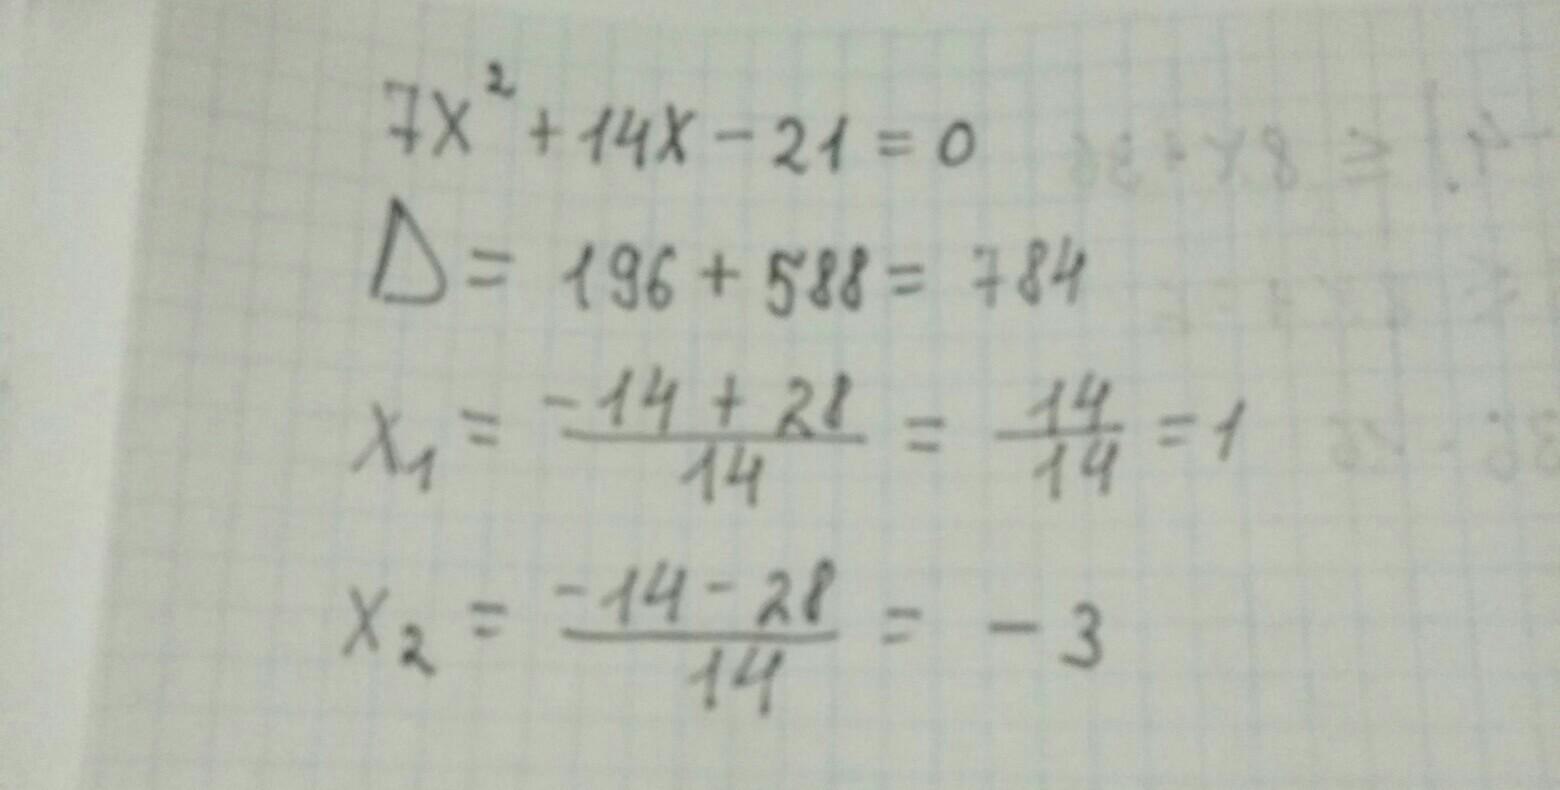 7x² + 14x - 21 = 0
D = 196 + 588 = 784
x₁ = (-14 + 28)/14 = 14/14 = 1
x₂ = (-14 - 28)/14 = -3